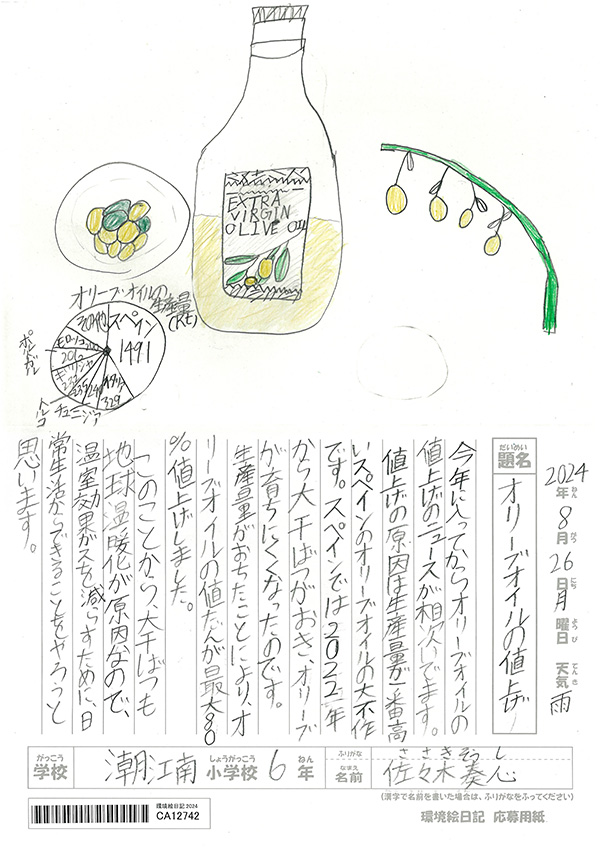 EXTRA
VIRGIN
OLIVE OIL
オリーブ・オイルの
生産量
(Kt)
スペイン
1491
イタリア
329
チュニジア
240
トルコ
ギリシャ
モロッコ
ポルトガル
その他
2024年8月26日月曜日 天気雨
題名 オリーブオイルの値上げ
今年に入ってからオリーブオイルの
値上げのニュースが相次いでます。
値上げの原因は生産量が一番高
いスペインのオリーブオイルの大不作
です。スペインでは2022年
から大干ばつがおき、オリーブ
が育ちにくくなったのです。
生産量がおちたことにより、オ
リーブオイルの値だんが最大80
%値上げしました。
このことから、大干ばつも
地球温暖化が原因なので、
温室効果ガスを減らすために、日
常生活からできることをやろうと
思います。
学校 潮江南小学校6年
ふりがな ささきそうし
名前 佐々木奏心
(漢字で名前を書いた場合は、ふりがなをふってください)
環境絵日記2024
CA12742
環境絵日記 応募用紙